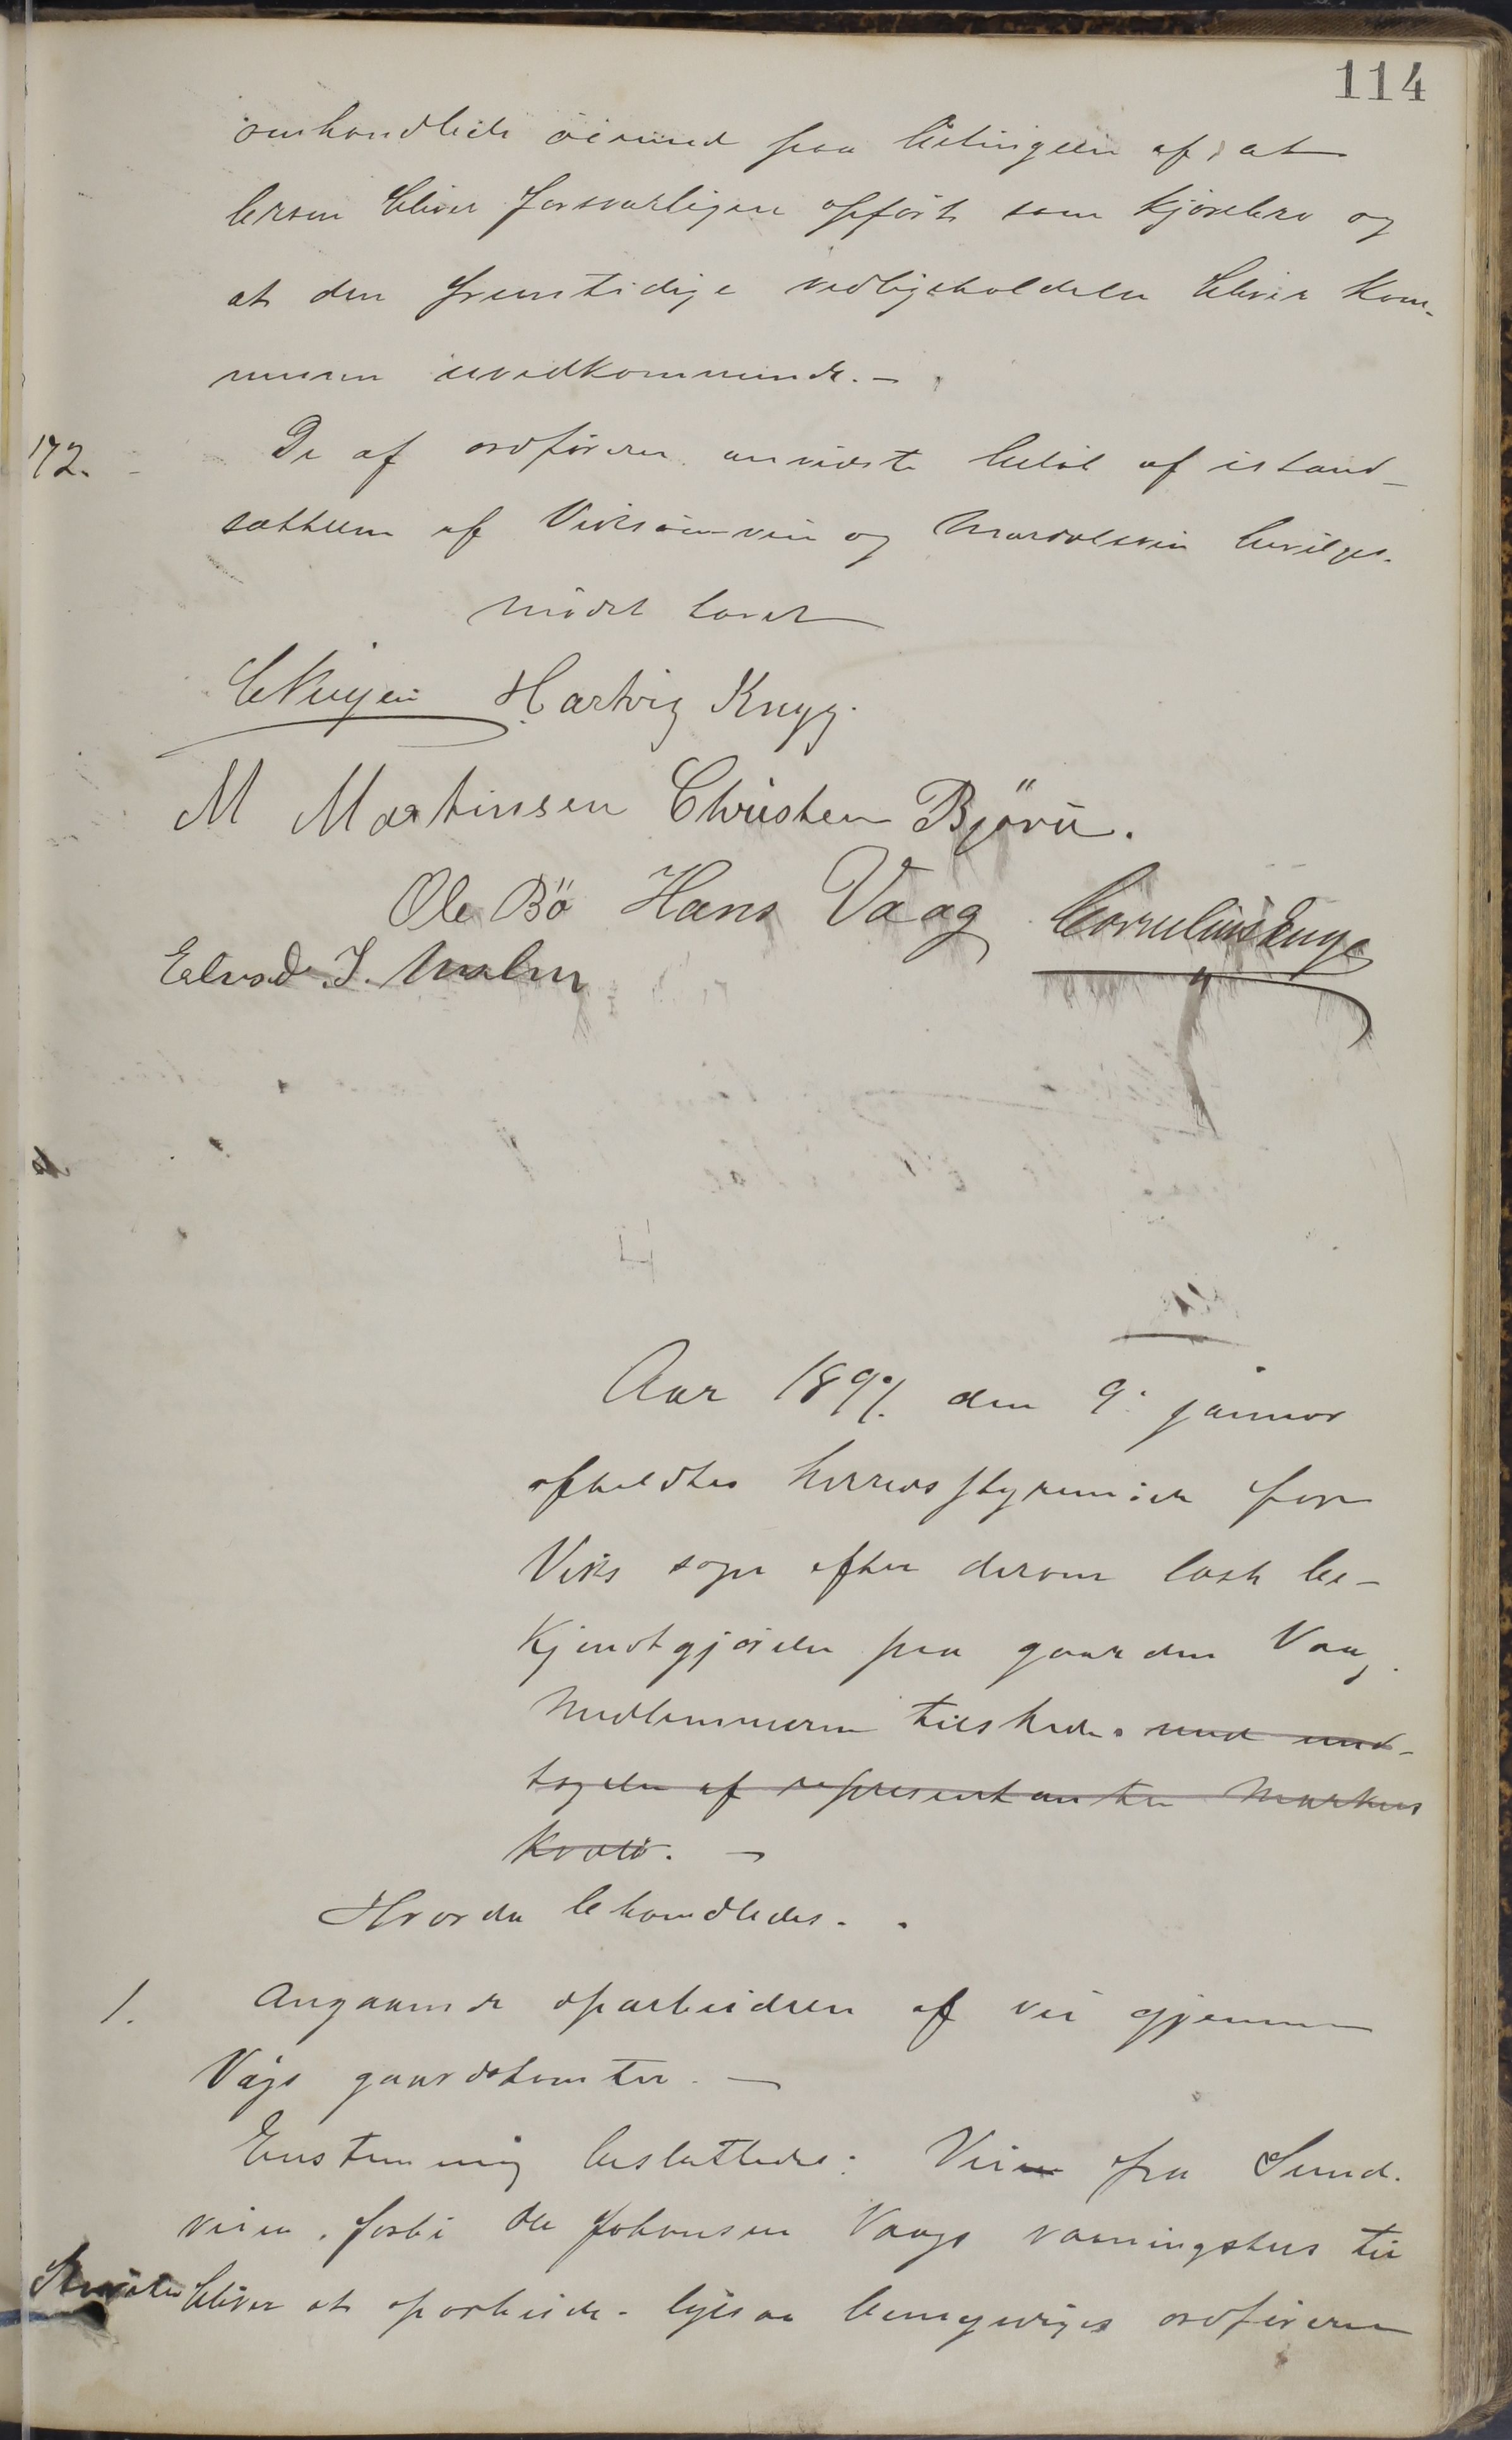 114
omhandlede øiemed paa betingelse af, at
broen bliver forsvarligen opført som kjørebro og
at den fremtidige vedligeholdelse bliver kom-
munen uvedkommende. -
172. De af ordføreren anviste beløb af istand-
sættelsen af Viksøenvei og Mardalsvei bevilges.
mödet hævet
Hartvig Knyg.
M Martinsen Christen Björü.
Ole Bö Hans Vaag Cornelius Enge
Edvard. J. Malm
Aar 1897. den 9. januar
afholdtes herredsstyremöde for
Viks sogn efter derom læst be-
kjendtgjörelse paa gaarden Vaag.
Medlemmerne tilstede. med und-
tagelse af representanten Markus
Kvalö. -
Hvorda behandledes.
1. Angaaende oparbeidelsen af vei gjennem
Vågs gaardstomter. -
Enstemmig besluttedes: Veien fra Sund-
veien. forbi Ole Johansen Vaags vaaningshus til
bliver at oparbeide. ligesaa bemyndiges ordföreren